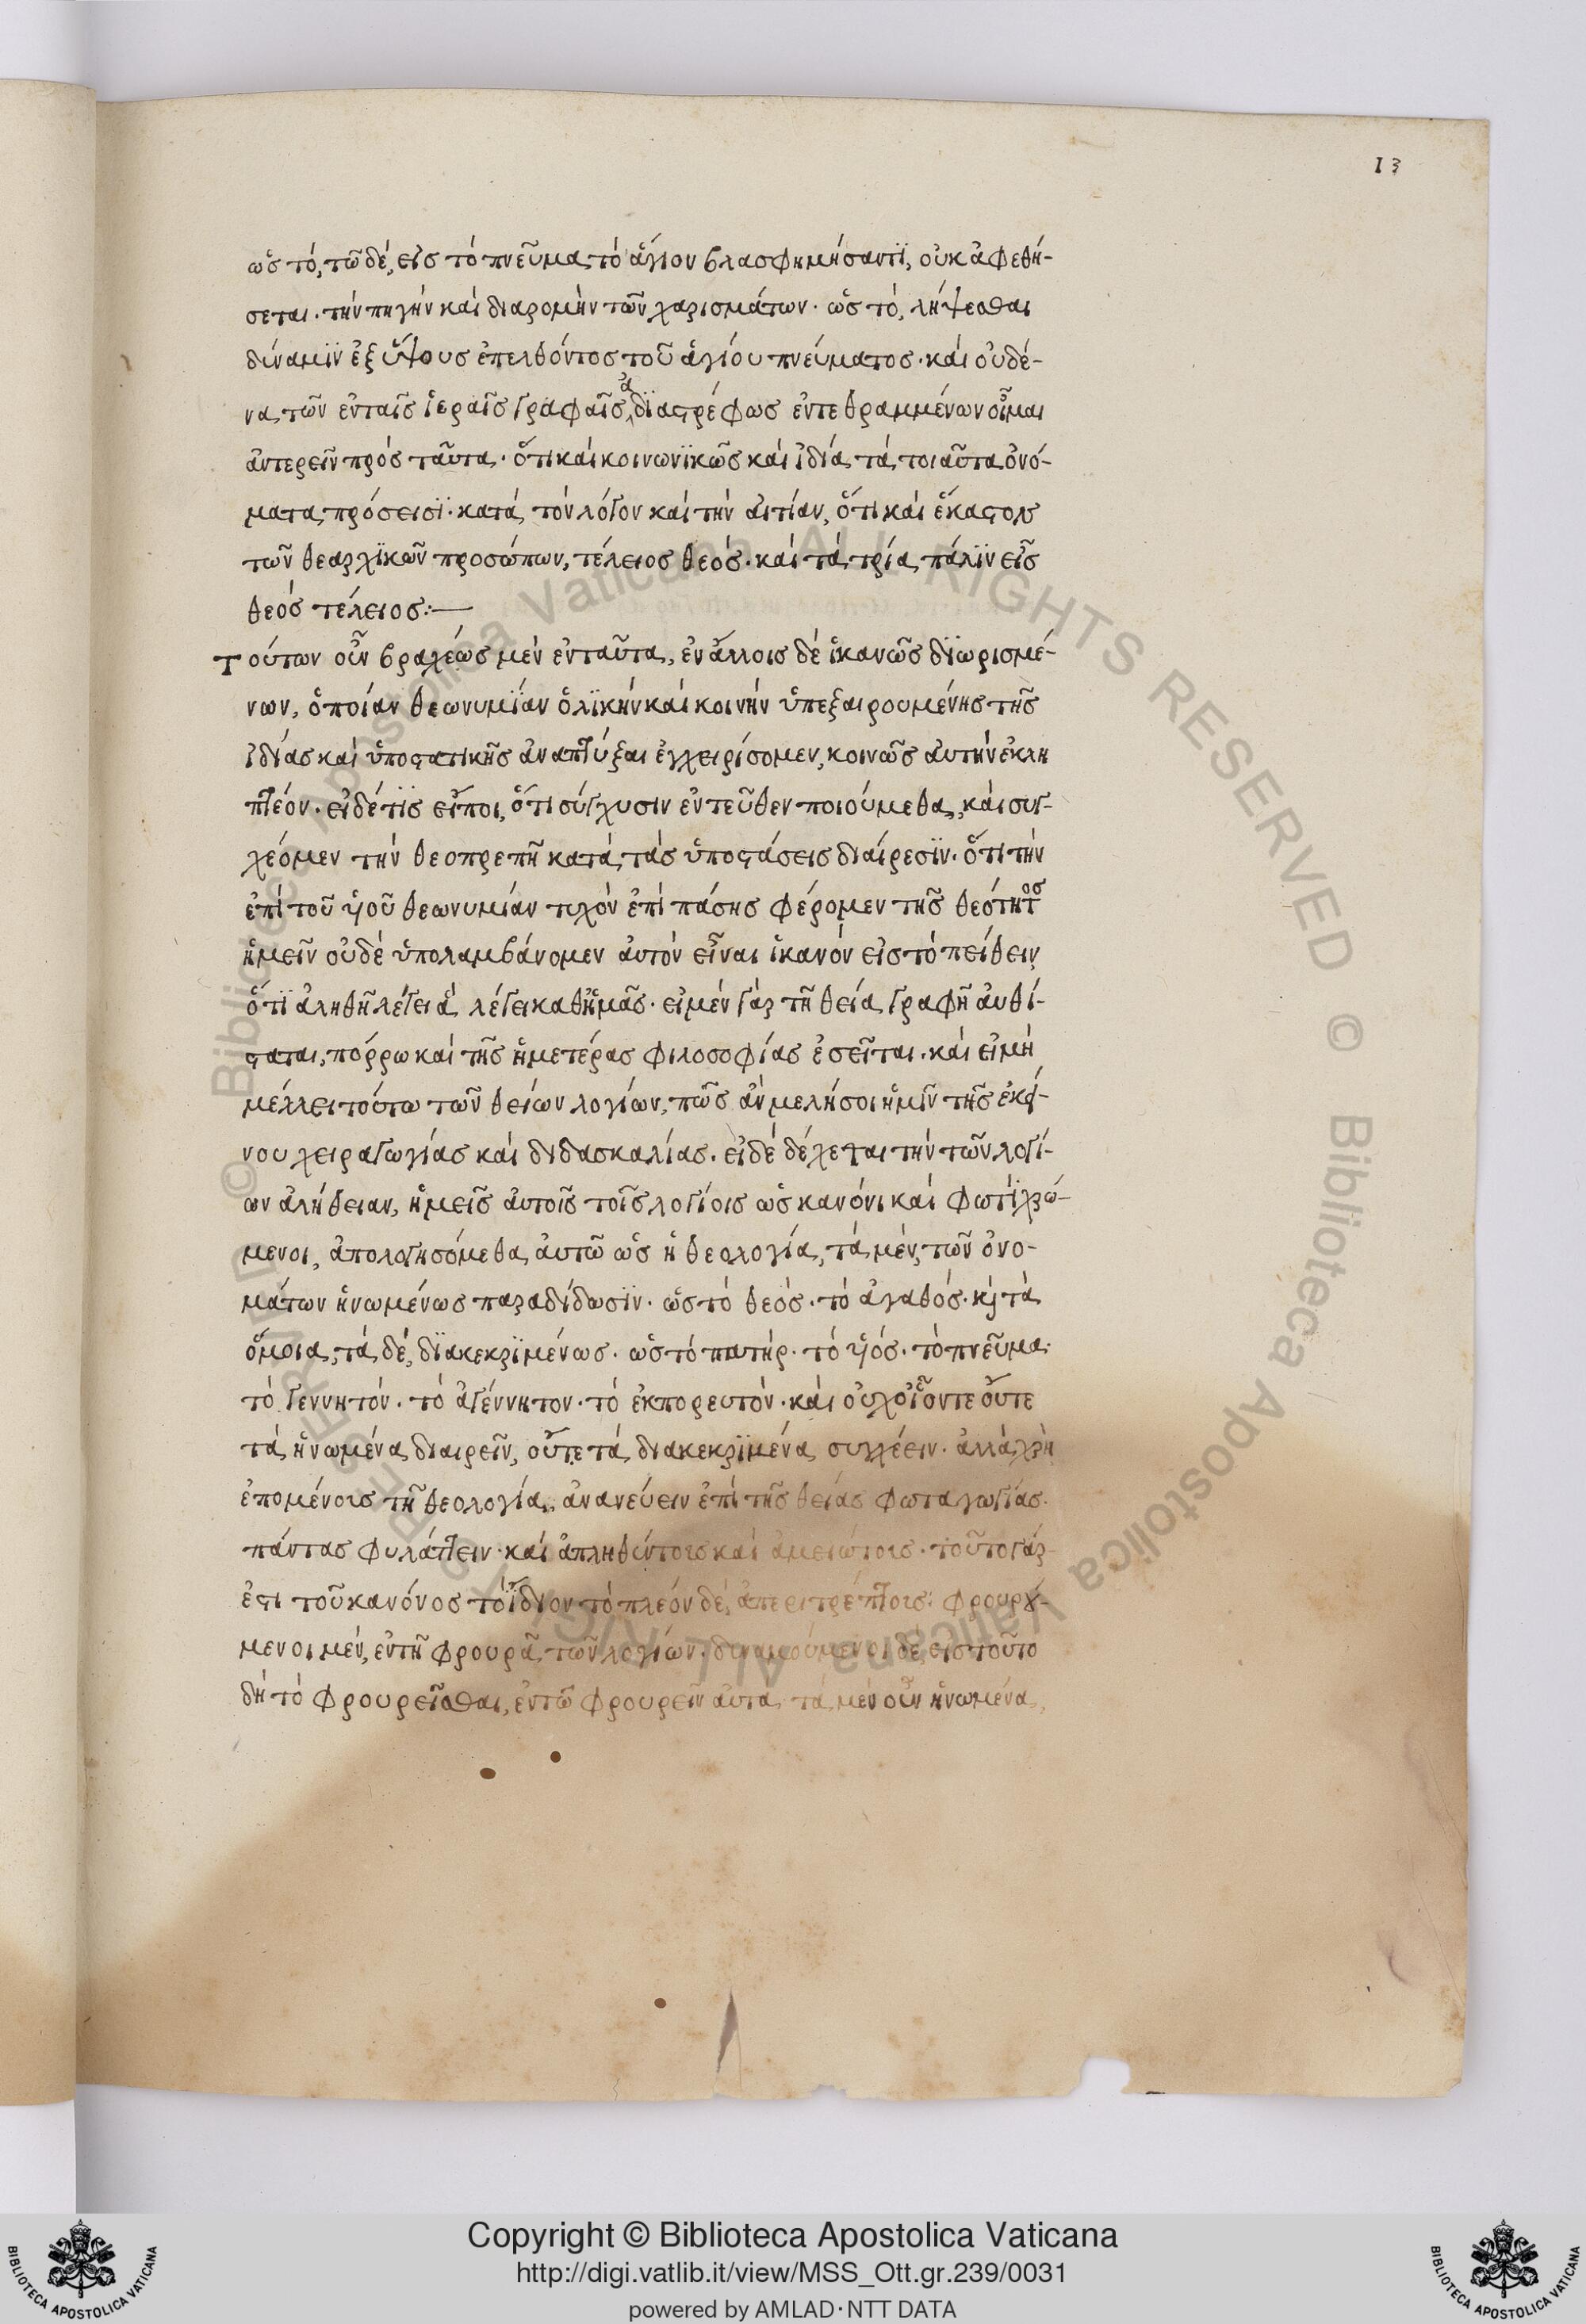 13
ὡς τὸ, τῶ δὲ, εἰς τὸ πνεῦμα τὸ ἅγιον βλασφημήσαντϊ, οὐκ ἀφεθή-
σεται. τὴν πηγὴν καὶ διαρομὴν τῶν χαρισμάτων. ὡς τὸ, λήψεσθαι
δύναμϊν ἐξ ὕψους ἐπελθόντος τοῦ ἁγίου πνεύματος. καὶ οὐδέ-
να τῶν ἐν ταῖς ἱεραῖς γραφαῖς ἀδϊαστρέφως ἐντεθραμμένων οἶμαι
ἀντερεῖν πρὸς ταῦτα. ὅτι καὶ κοινωνϊκῶς καὶ ἰδία τὰ τοιαῦτα ὀνό-
ματα πρόσεισϊ. κατὰ τὸν λόγον καὶ τὴν αἰτίαν, ὅτι καὶ ἕκαστον
τῶν θεαρχϊκῶν προσώπων, τέλειος θεός. καὶ τὰ τρία πάλϊν εἷς
θεὸς τέλειος:—
Τούτων οὖν βραχέως μὲν ἐνταῦτα, ἐν ἄλλοις δὲ ἱκανῶς δϊωρισμέ-
νων, ὁποίαν θεωνυμΐαν ὁλϊκὴν καὶ κοινὴν ὑπεξαιρουμένης τῆς
ἰδίας καὶ ὑποστατικῆς ἀναπτύξαι ἐγχειρίσομεν, κοινῶς αὐτὴν ἐκλη
πτέον. εἰ δέ τϊς εἴποι, ὅτι σύγχυσιν ἐντεῦθεν ποιούμεθα, καὶ συγ-
χέομεν τὴν θεοπρεπῆ κατὰ τὰς ὑποστάσεις διαίρεσϊν. ὅτι τὴν
ἐπὶ τοῦ υἱοῦ θεωνυμίαν τυχὸν ἐπὶ πάσης φέρομεν τῆς θεότητος
ἡμεῖν οὐδὲ ὑπολαμβάνομεν αὐτὸν εἶναι ἱκανὸν εἰς τὸ πείθειν
ὅτϊ ἀληθῆ λέγει ἃ λέγει καθ' ἡμᾶς. εἰ μὲν γὰρ τῆ θεία γραφῆ ἀνθί-
σταται, πόρρω καὶ τῆς ἡμετέρας φιλοσοφίας ἐσεῖται. καὶ εἰ μὴ
μέλλει τούτω τῶν θείων λογίων, πῶς ἂν μελήσοι ἡμῖν τῆς ἐκεί-
νου χειραγωγίας καὶ διδασκαλίας. εἰ δὲ δέχεται τὴν τῶν λογί-
ων ἀλήθειαν, ἡμεῖς αὐτοῖς τοῖς λογίοις ὡς κανόνι καὶ φωτὶ χρώ-
μενοι, ἀπολογησόμεθα αὐτῶ ὡς ἡ θεολογία, τὰ μὲν τῶν ὀνο-
μάτων ἡνωμένως παραδίδωσϊν. ὡς τὸ θεός. τὸ ἀγαθός. κ τὰ
ὅμοια, τὰ δὲ, δϊακεκρϊμένως. ὡς τὸ πατήρ. τὸ υἱός. τὸ πνεῦμα.
τὸ γεννητόν. τὸ ἀγέννητον. τὸ ἐκπορευτόν. καὶ οὐχ οἷόν τε οὔτε
τὰ ἡνωμένα διαιρεῖν, οὔτε τὰ διακεκρϊμένα συγχέειν. ἀλλὰ χρὴ
ἑπομένοις τῆ θεολογία, ἀνανεύειν ἐπὶ τῆς θείας φωταγωγίας.
πάντας φυλάττειν. καὶ ἀπληθύντοις καὶ ἀμειώτοις. τοῦτο γάρ
ἐστι τοῦ κανόνος τὸ ἴδιον τὸ πλέον δέ, ἀπεριτρέπτοις: φρουρού-
μενοι μὲν, ἐν τῆ φρουρᾶ τῶν λογίων. δυναμούμενοι δὲ, εἰς τοῦτο
δὴ τὸ φρουρεῖσθαι, ἐν τῶ φρουρεῖν αὐτά, τὰ μὲν οὖν ἡνωμένα,
© Biblioteca Apostolica Vaticana ALL RIGHTS RESERVED
Copyright © Biblioteca Apostolica Vaticana
http://digi.vatlib.it/view/MSS_Ott.gr.239/0031
powered by AMLAD·NTT DATA
BIBLIOTECA APOSTOLICA VATICANA
BIBLIOTECA APOSTOLICA VATICANA